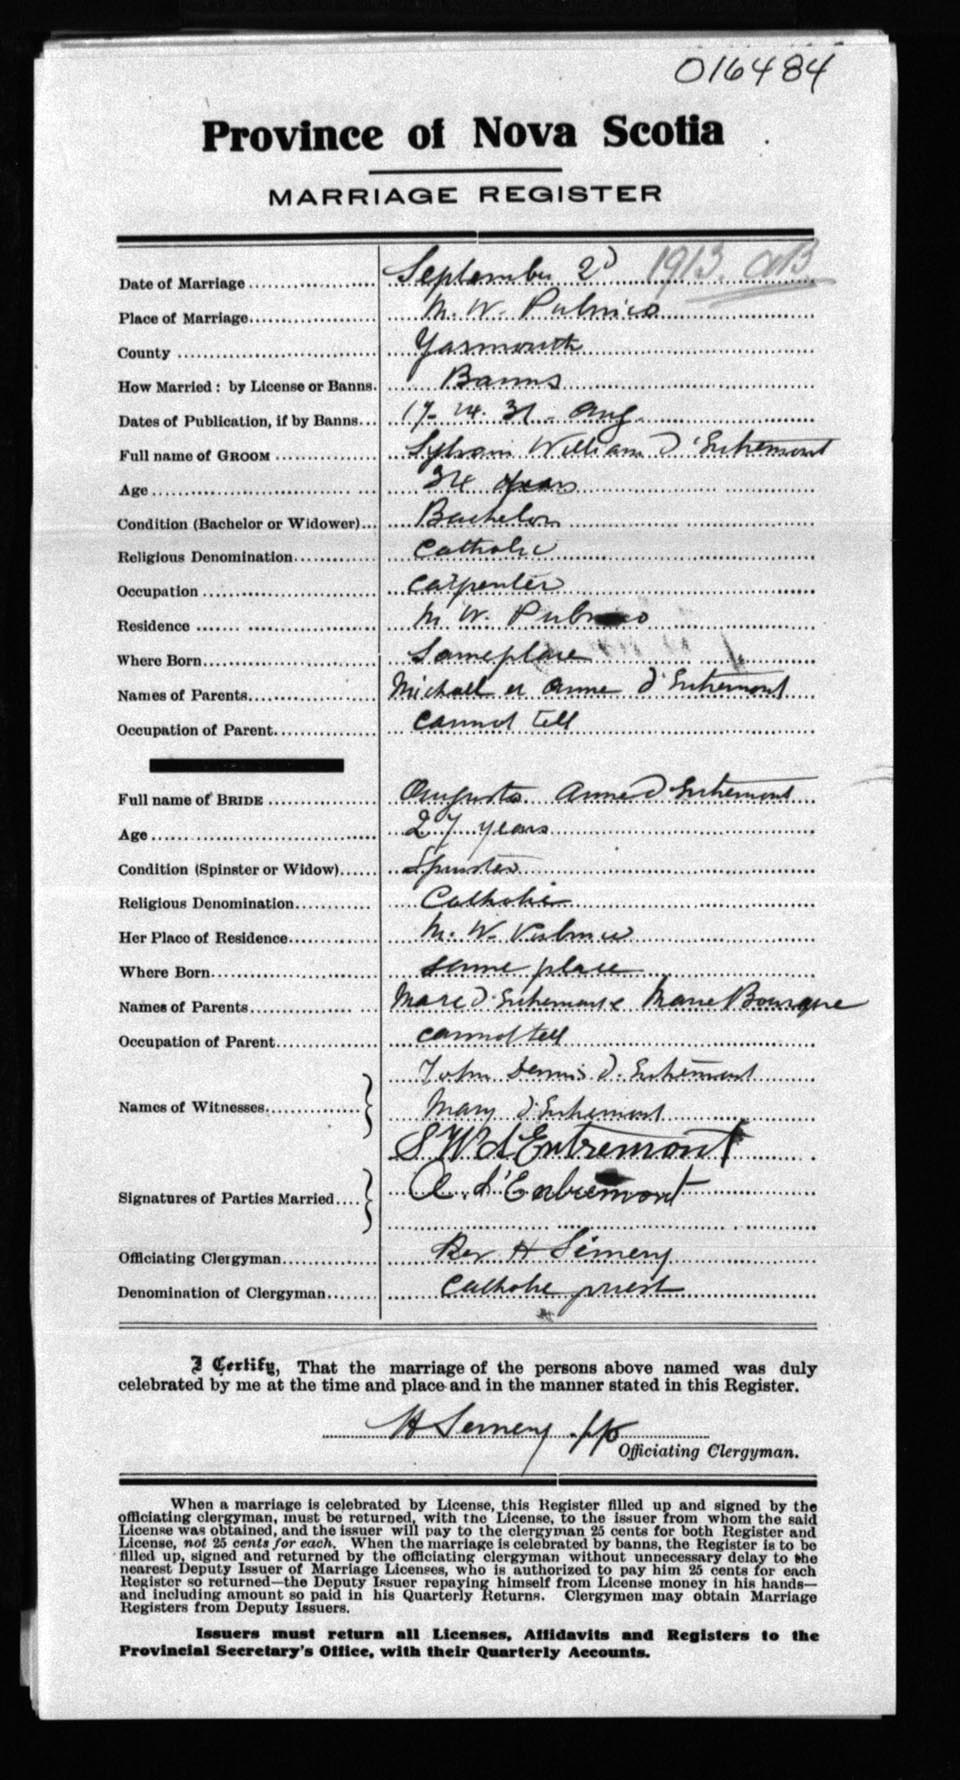 016484
Province of Nova Scotia
MARRIAGE REGISTER
Date of Marriage September 2d 1913.
Place of Marriage M. W. Pubnico
County Yarmouth
How Married: by License or Banns. Banns
Dates of Publication, if by Banns 17- 24. 31 - Aug.
Full name of GROOM Sylvain William d'Entremont
Age 34 years
Condition (Bachelor or Widower) Bachelor
Religious Denomination Catholic
Occupation Carpenter
Residence M W. Pubnico
Where Born Same place
Names of Parents Michall et Anne d'Entremont
Occupation of Parent cannot tell
Full name of BRIDE Augusta Anne d'Entremont
Age 27 years
Condition (Spinster or Widow) Spinster
Religious Denomination Catholic
Her Place of Residence M. W. Pubnico
Where Born same place
Names of Parents Marc d'Entremont & Marie Bourque
Occupation of Parent cannot tell
John Dennis d'Entremont
Names of Witnesses
Mary d'Entremont
S W d'Entremont
Signatures of Parties Married A. d'Entremont
Officiating Clergyman Rev H
Denomination of Clergyman Catholic priest
I Certify, That the marriage of the persons above named was duly
celebrated by me at the time and place and in the manner stated in this Register.
H pp
Officiating Clergyman.
When a marriage is celebrated by License, this Register filled up and signed by the
officiating clergyman, must be returned, with the License, to the issuer from whom the said
License was obtained, and the issuer will pay to the clergyman 25 cents for both Register and
License, not 25 cents for each. When the marriage is celebrated by banns, the Register is to be
filled up, signed and returned by the officiating clergyman without unnecessary delay to the
nearest Deputy Issuer of Marriage Licenses, who is authorized to pay him 25 cents for each
Register so returned—the Deputy Issuer repaying himself from License money in his hands—
and including amount so paid in his Quarterly Returns. Clergymen may obtain Marriage
Registers from Deputy Issuers.
Issuers must return all Licenses, Affidavits and Registers to the
Provincial Secretary's Office, with their Quarterly Accounts.